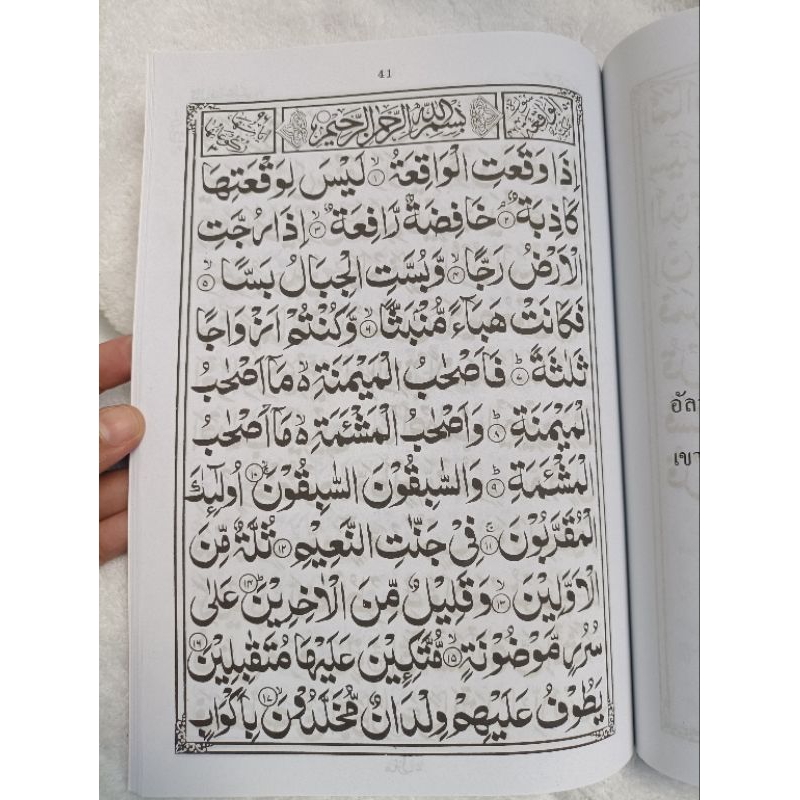 41
بِسْمِ اللّٰهِ الرَّحْمٰنِ الرَّحِيْمِ
اِذَا وَقَعَتِ الْوَاقِعَةُ ۙ﴿۱﴾ لَيْسَ لِوَقْعَتِهَا
كَاذِبَةٌ ۘ﴿۲﴾ خَافِضَةٌ رَّافِعَةٌ ۙ﴿۳﴾ اِذَا رُجَّتِ
الْاَرْضُ رَجًّا ۙ﴿۴﴾ وَّبُسَّتِ الْجِبَالُ بَسًّا ۙ﴿۵﴾
فَكَانَتْ هَبَآءً مُّنْۢبَثًّا ۙ﴿۶﴾ وَّكُنْتُمْ اَزْوَاجًا
ثَلٰثَةً ؕ﴿۷﴾ فَاَصْحٰبُ الْمَيْمَنَةِ ۙ مَاۤ اَصْحٰبُ
الْمَيْمَنَةِ ؕ﴿۸﴾ وَاَصْحٰبُ الْمَشْـَٔمَةِ ۙ مَاۤ اَصْحٰبُ
الْمَشْـَٔمَةِ ؕ﴿۹﴾ وَالسّٰبِقُوْنَ السّٰبِقُوْنَ ۙ﴿۱۰﴾ اُولٰٓئِكَ
الْمُقَرَّبُوْنَ ۚ﴿۱۱﴾ فِيْ جَنّٰتِ النَّعِيْمِ ﴿۱۲﴾ ثُلَّةٌ مِّنَ
الْاَوَّلِيْنَ ۙ﴿۱۳﴾ وَقَلِيْلٌ مِّنَ الْاٰخِرِيْنَ ؕ﴿۱۴﴾ عَلٰى
سُرُرٍ مَّوْضُوْنَةٍ ۙ﴿۱۵﴾ مُّتَّكِـِٕيْنَ عَلَيْهَا مُتَقٰبِلِيْنَ ﴿۱۶﴾
يَطُوْفُ عَلَيْهِمْ وِلْدَانٌ مُّخَلَّدُوْنَ ۙ﴿۱۷﴾ بِاَكْوَابٍ